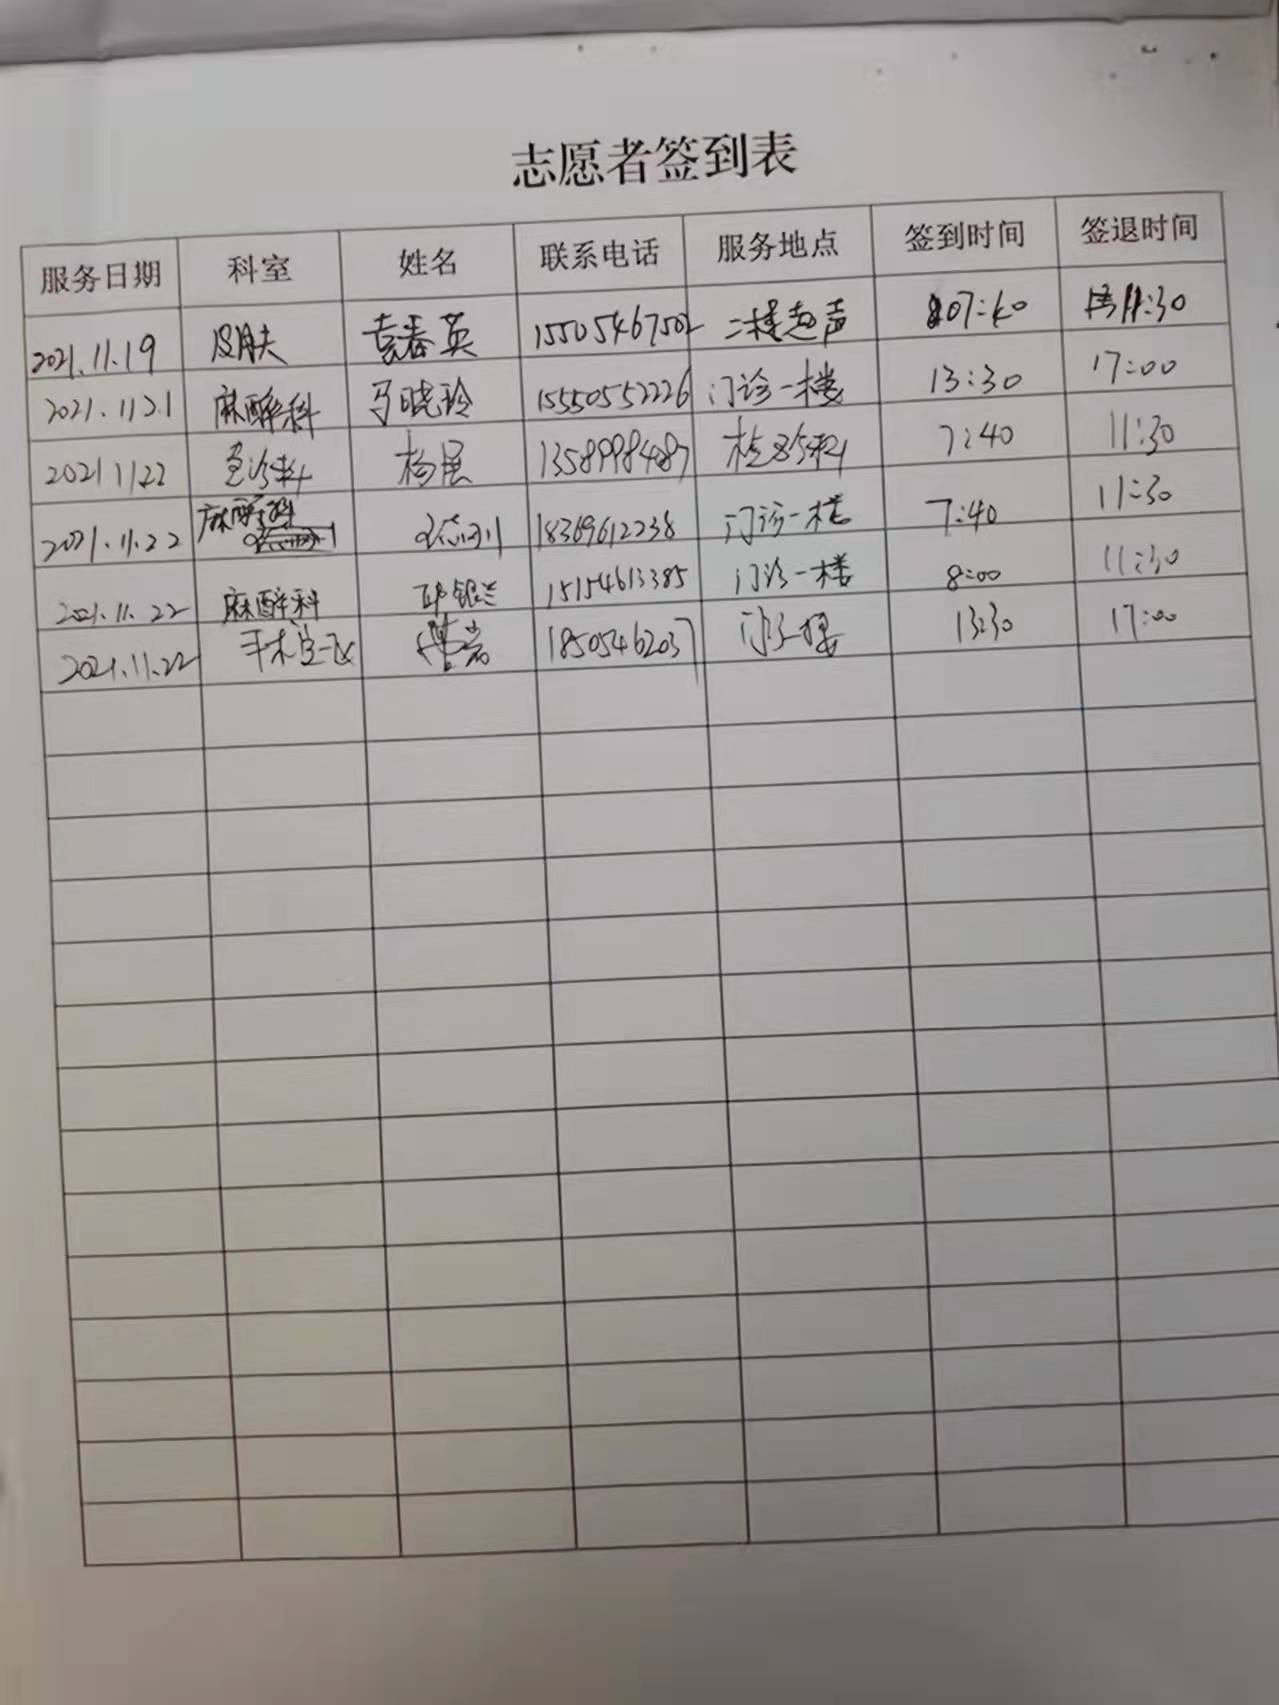 志愿者签到表
服务日期 科室 姓名 联系电话 服务地点 签到时间 签退时间
2021.11.19 皮肤 袁春英 15505467502 二楼超声 07:40 11:30
2021.11.21 麻醉科 马晓玲 15550552226 门诊一楼 13:30 17:00
2021.11.22 急诊科 杨展 13589984487 检验科 7:40 11:30
2021.11.22 麻醉科 18369612238 门诊一楼 7:40 11:30
2021.11.22 麻醉科 邱银兰 15154613385 门诊一楼 8:00 11:30
2021.11.22 手术室一区 18505462037 13:30 17:00